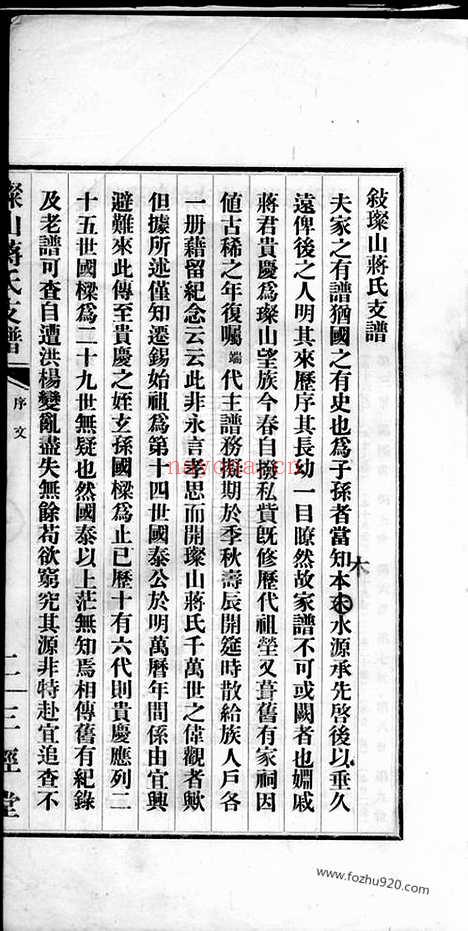 敍璨山蔣氏支譜
夫家之有譜猶國之有史也爲子孫者當知本木水源承先啓後以垂久
遠俾後之人明其來歷序其長幼一目瞭然故家譜不可或闕者也姻戚
蔣君貴慶爲璨山望族今春自撥私貲既修歷代祖塋又葺舊有家祠因
値古稀之年復囑端代主譜務擬期於季秋壽辰開筵時散給族人戶各
一册藉留紀念云云此非永言孝思而開璨山蔣氏千萬世之偉觀者歟
但據所述僅知遷錫始祖爲第十四世國泰公於明萬曆年間係由宜興
避難來此傳至貴慶之姪玄孫國樑爲止已歷十有六代則貴慶應列二
十五世國樑爲二十九世無疑也然國泰以上茫無知焉相傳舊有紀錄
及老譜可查自遭洪楊變亂盡失無餘苟欲窮究其源非特赴宜追查不
璨山蔣氏支譜
序文
二
三徑堂
木
navona.cn
www.fozhu920.com